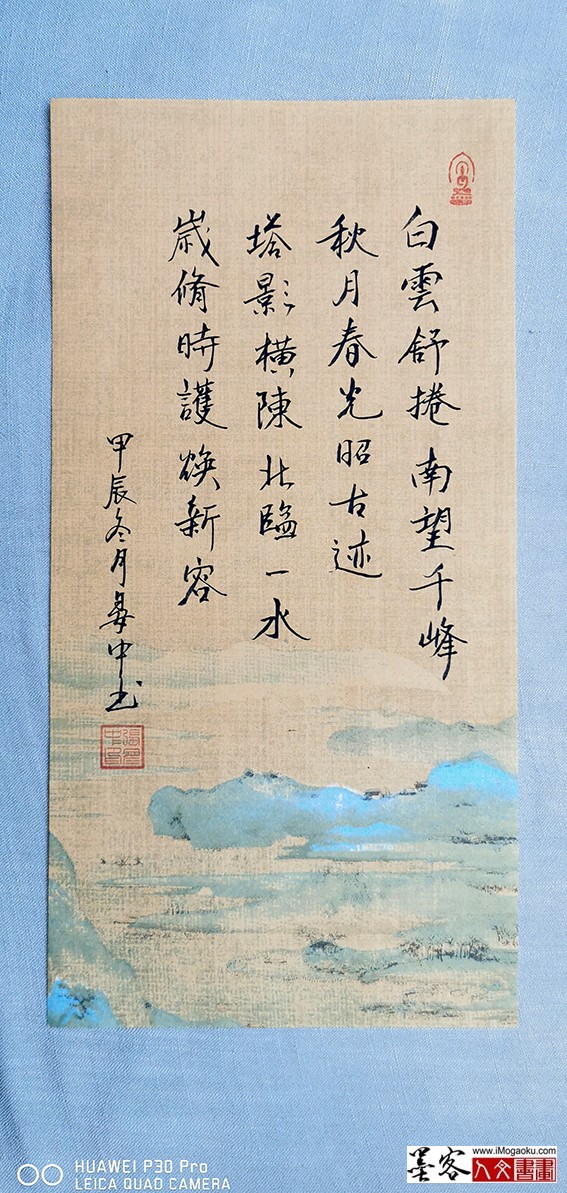 白雲舒捲南望千峰
秋月春光昭古迹
塔影橫陳北臨一水
歲脩時護煥新容
甲辰冬月每中书
HUAWEI P30 Pro
LEICA QUAD CAMERA
墨客
www.iMogaoku.com
人文書畫